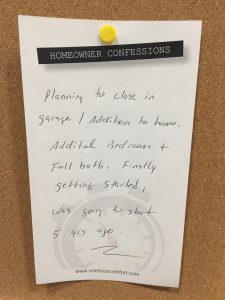 HOMEOWNER CONFESSIONS
Planning to close in
garage / Addition to home.
Addital Bedroom +
Full bath. Finally
getting started,
was going to start
5 yrs ago.
www.onehourcomfort.com